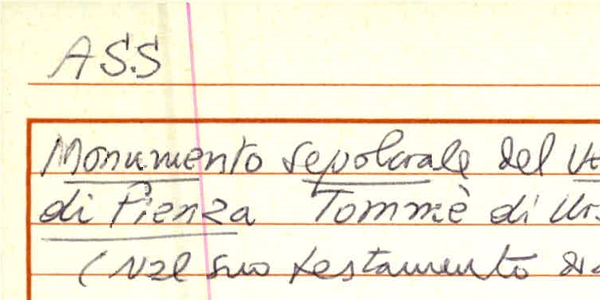 ASS
Monumento sepolcrale del
di Pienza Tommè di
(Nel suo testamento